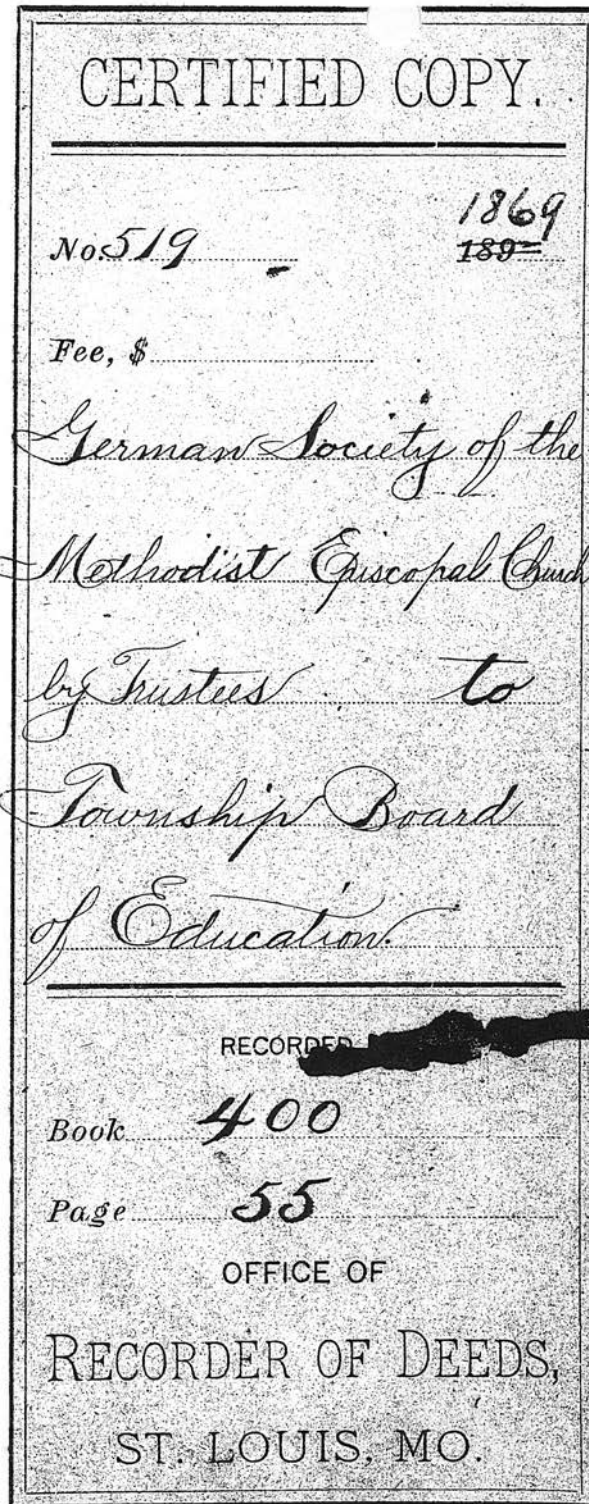 CERTIFIED COPY.
1869
No. 519 189
Fee, $
German Society of the
Methodist Episcopal Church
by Trustees to
Township Board
of Education.
RECORDED
Book 400
Page 55
OFFICE OF
RECORDER OF DEEDS,
ST. LOUIS, MO.